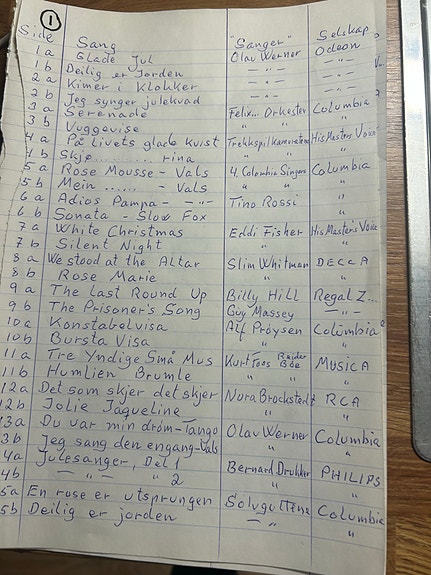 1
Side Sang "Sanger" Selskap
1a Glade Jul Olav Werner Odeon
1b Deilig er Jorden -"- -"-
2a Kimer i Klokker -"- -"-
2b Jeg synger julekvad -"- -"-
3a Serenade Felix... Orkester Columbia
3b Vuggevise " "
4a På Livets glade kvist Trekkspilkameratene His Masters Voice
4b Skjø.......... rina " "
5a Rose Mousse - Vals 4 Colombia Singers Columbia
5b Mein ...... - Vals " "
6a Adios Pampa - -"- Tino Rossi "
6b Sonata - Slow Fox " "
7a White Christmas Eddi Fisher His Master's Voice
7b Silent Night " "
8a We stood at the Altar Slim Whitman DECCA
8b Rose Marie " "
9a The Last Round Up Billy Hill Regal Z...
9b The Prisoner's Song Guy Massey -"-
10a Konstabelvisa Alf Prøysen Columbia
10b Bursta Visa " "
11a Tre Yndige Små Mus Kurt Foss Reidar Bøe MUSICA
11b Humlien Brumle " "
12a Det som skjer det skjer Nora Brockstedt RCA
12b Jolie Jaqueline " "
13a Du var min drøm - Tango Olav Werner Columbia
3b Jeg sang den engang - Vals " "
4a Julesanger, Del 1 Bernard Drukker PHILIPS
4b -"- " 2 " "
5a En rose er utsprungen Sølvguttene Columbia
5b Deilig er jorden -"- "